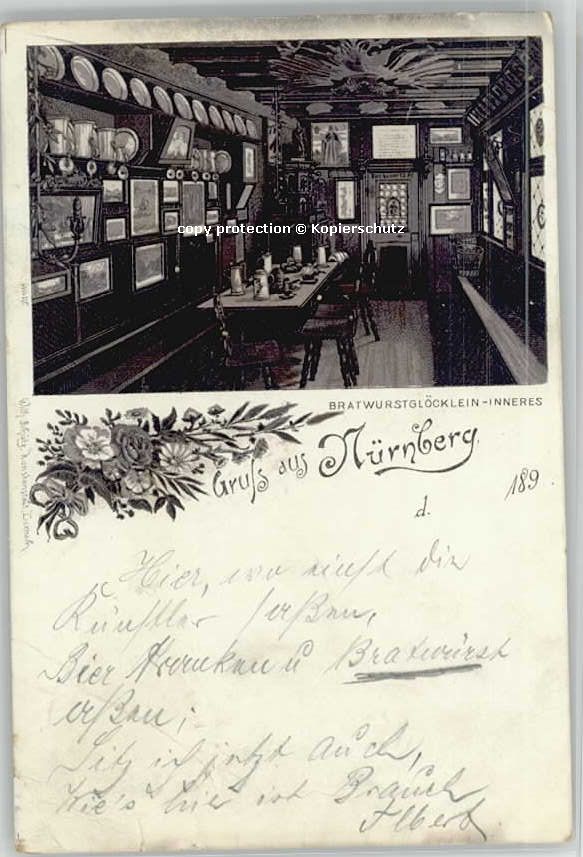 copy protection © Kopierschutz
BRATWURSTGLÖCKLEIN-INNERES
Gruß aus Nürnberg.
d. 189 .
Hier, wo einst die
Künstler saßen,
Bier tranken u Bratwürst
aßen;
Sitz ich jetzt auch,
Wie's hier ist Brauch
Albert